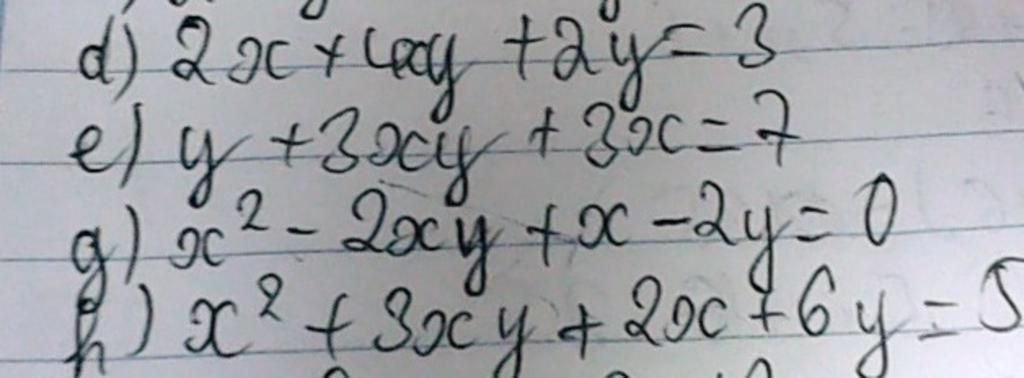 d) 2x + 4xy + 2y = 3
e) y + 3xy + 3x = 7
g) x² - 2xy + x - 2y = 0
h) x² + 3xy + 2x + 6y = 5